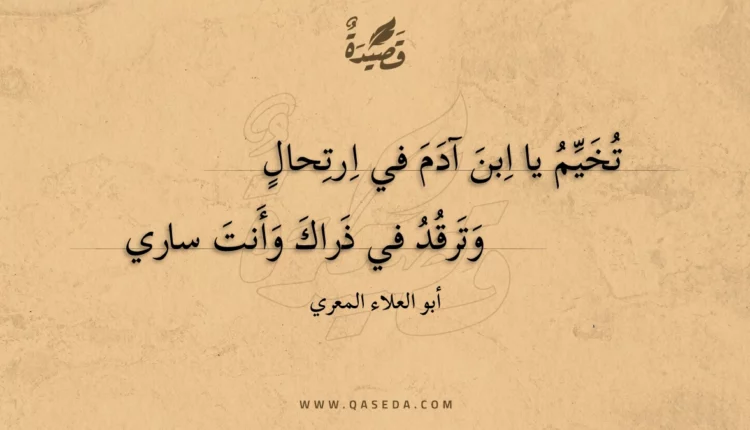 قَصِيْدَةٌ
تُخَيِّمُ يا اِبنَ آدَمَ في اِرتِحالٍ
وَتَرقُدُ في ذَراكَ وَأَنتَ ساري
أبو العلاء المعري
WWW.QASEDA.COM